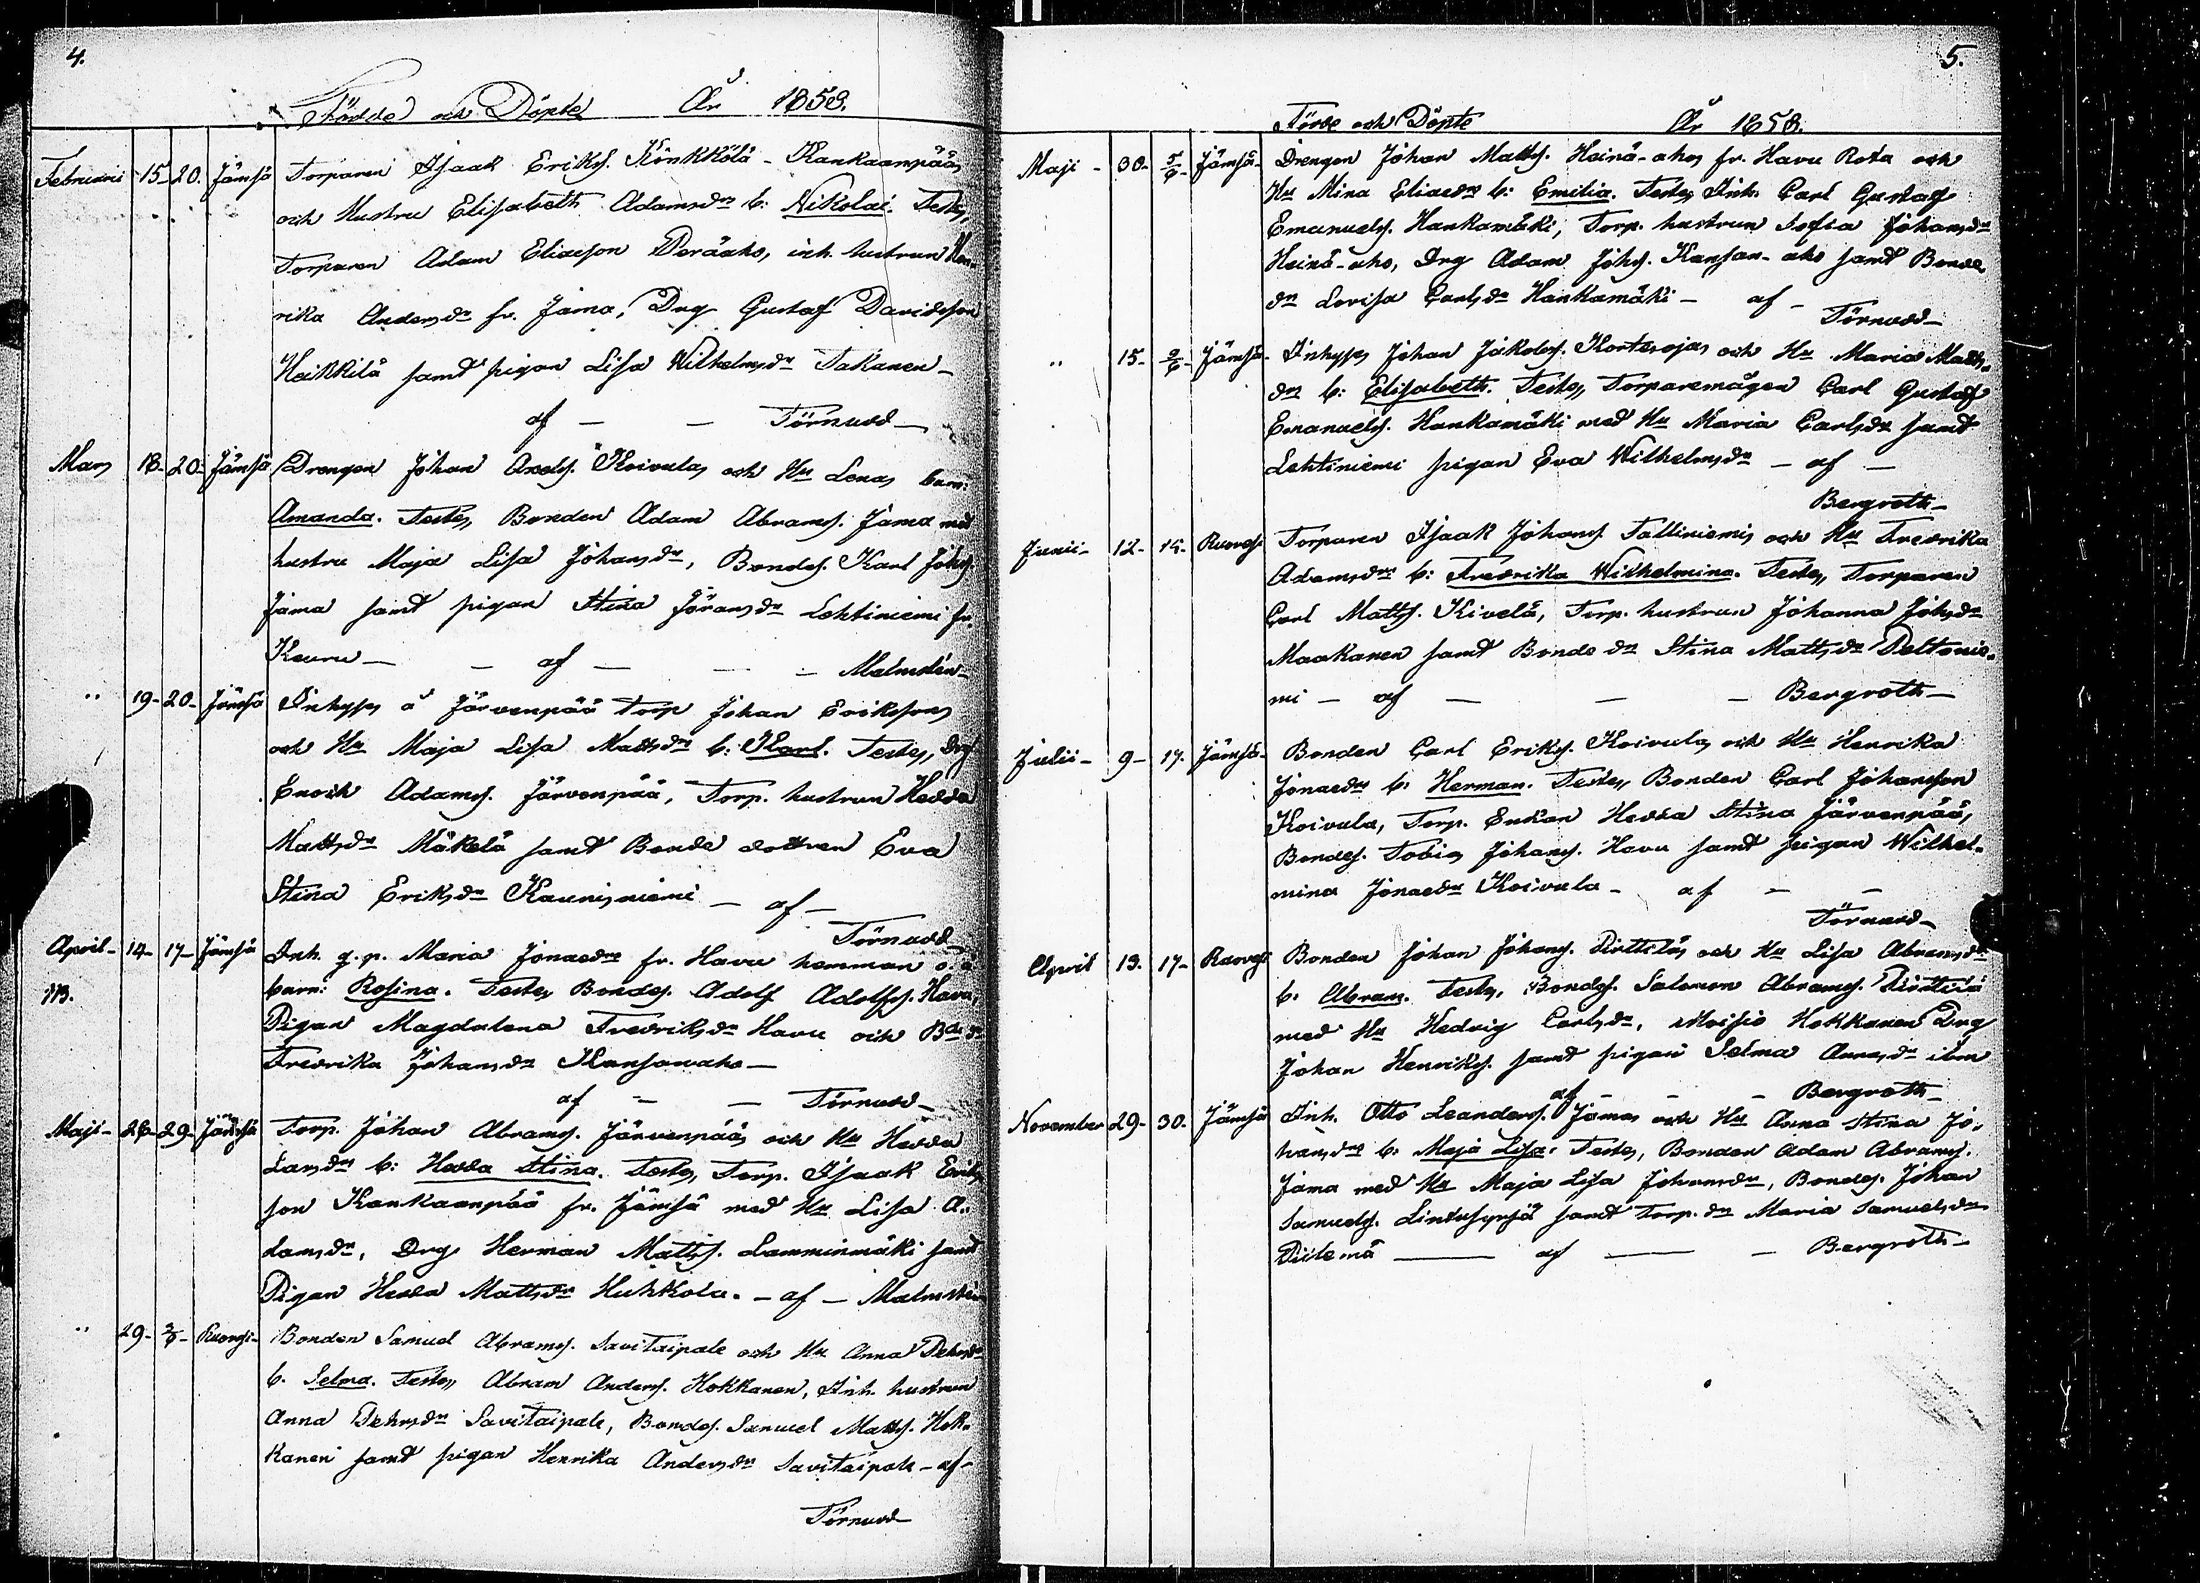 4.
Födde och Döpte År 1858.
Februari 15- 20. Jämsä Torparen Isaak Eriks. Könkkölä - Kankaanpää,
och Hustru Elisabeth Adamsdr b: Nikolai. Testes,
Torparen Adam Eliasson Peräaho, inh. hustrun Hen-
rika Andersdr fr. Jäma, Drg Gustaf Davidsson
Heikkilä samt pigan Lisa Wilhelmsdr Takanen -
af - - Törnudd -
Mars 18- 20- Jämsä Drengen Johan Axels. Koivula, och Hu Lenas barn:
Amanda. Testes, Bonden Adam Abrams. Jäma med
hustru Maja Lisa Johansdr, Bondes. Karl Johs.
Jäma samt pigan Stina Göransdr Lehtiniemi fr.
Keuru - - af - - - Malmstén -
" 19- 20- Jämsä Inhyses å Järvenpää Torp Johan Erikssons
och Hu Maja Lisa Mattsdrs b: Karl. Testes, Drg
Enoch Adams. Järvenpää, Torp. hustrun Hedda
Mattsdr Mäkelä samt Bonde dottren Eva
Stina Eriksdr Kaunisniemi - af -
Törnudd -
April - 14- 17- Jämsä Inh. q. p. Maria Jonaedrs fr. Havu hemman o. ä.
barn: Rosina. Testes Bondes. Adolf Adolfs. Havu,
Pigan Magdalena Fredriksdr Havu och Bde dr
Fredrika Johansdr Kansanaho -
af - - Törnudd -
Maji - 26- 29- Jämsä Torp. Johan Abrams. Järvenpää, och Hu Hedda
Larsdrs b: Hedda Stina. Testes, Torp. Isaak Eriks-
son Kankaanpää fr. Jämsä med Hu Lisa A-
damsdr, Drg Herman Matts. Lamminmäki samt
Pigan Hedda Mattsdr Huhkola. - af - Malmstén
" 29- Ruovesi - Bonden Samuel Abrams. Savitaipale och Hu Anna Pehrsdr
b. Selma. Testes, Abram Anders. Hokkanen, Inh. hustrun
Anna Pehrsdr Savitaipale, Bondes. Samuel Matts. Hok-
kanen samt pigan Henrika Andersdr Savitaipale - af -
Törnudd
5.
Födde och Döpte År 1858.
Maji - 30- 5/6- Jämsä - Drengen Johan Matts. Heinä-aho, fr. Havu Rota och
Hu Mina Eliaedrs b: Emilia. Testes, Inh. Carl Gustaf
Emanuels. Hankamäki, Torp. hustrun Sofia Johansdr
Heinä-aho, Drg Adam Johs. Kansan-aho samt Bonde
dr Lovisa Carlsdr Hankamäki - af -
Törnudd -
" 15- Jämsä - Inhyses Johan Jakobs. Kortesoja, och Hu Maria Matts-
drs b: Elisabeth. Testes, Torparemågen Carl Gustaf
Emanuels. Hankamäki med Hu Maria Carlsdr samt
Lehtiniemi pigan Eva Wilhelmsdr - af -
Bergroth -
Junii - 12- Ruovesi Torparen Isaak Johans. Talliniemi, och Hu Fredrika
Adamsdrs b: Fredrika Wilhelmina. Testes, Torparen
Carl Matts. Kivelä, Torp. hustrun Johanna Johsdr
Maakanen samt Bonde dr Stina Mattsdr Peltonie-
mi - af - - - Bergroth -
Julii - 9- 17. Jämsä - Bonden Carl Eriks. Koivula, och Hu Henrika
Jonaedrs b. Herman. Testes, Bonden Carl Johansson
Koivula, Torp. Enkan Hedda Stina Järvenpää,
Bondes. Tobias Johans. Havu samt pigan Wilhel-
mina Jonaedr Koivula - af - -
Törnudd -
April 13. 17- Ruovesi Bonden Johan Johans. Pirttilä, och Hu Lisa Abramsdrs
b. Abram. Testes, Bondes. Salomon Abrams. Pirttilä
med Hu Hedvig Carlsdr, Hokkanen Drg
Johan Henriks. samt pigan Selma Annasdr ibm
af - - - Bergroth -
November 29- 30. Jämsä Inh. Otto Leanders. Jäma, och Hu Anna Stina Jo-
hansdrs b. Maja Lisa. Testes, Bonden Adam Abrams.
Jäma med Hu Maja Lisa Johansdr, Bondes. Johan
Samuels. Lintusyrjä samt Torp. dr Maria Samuelsdr
Piilemä - af - - Bergroth -